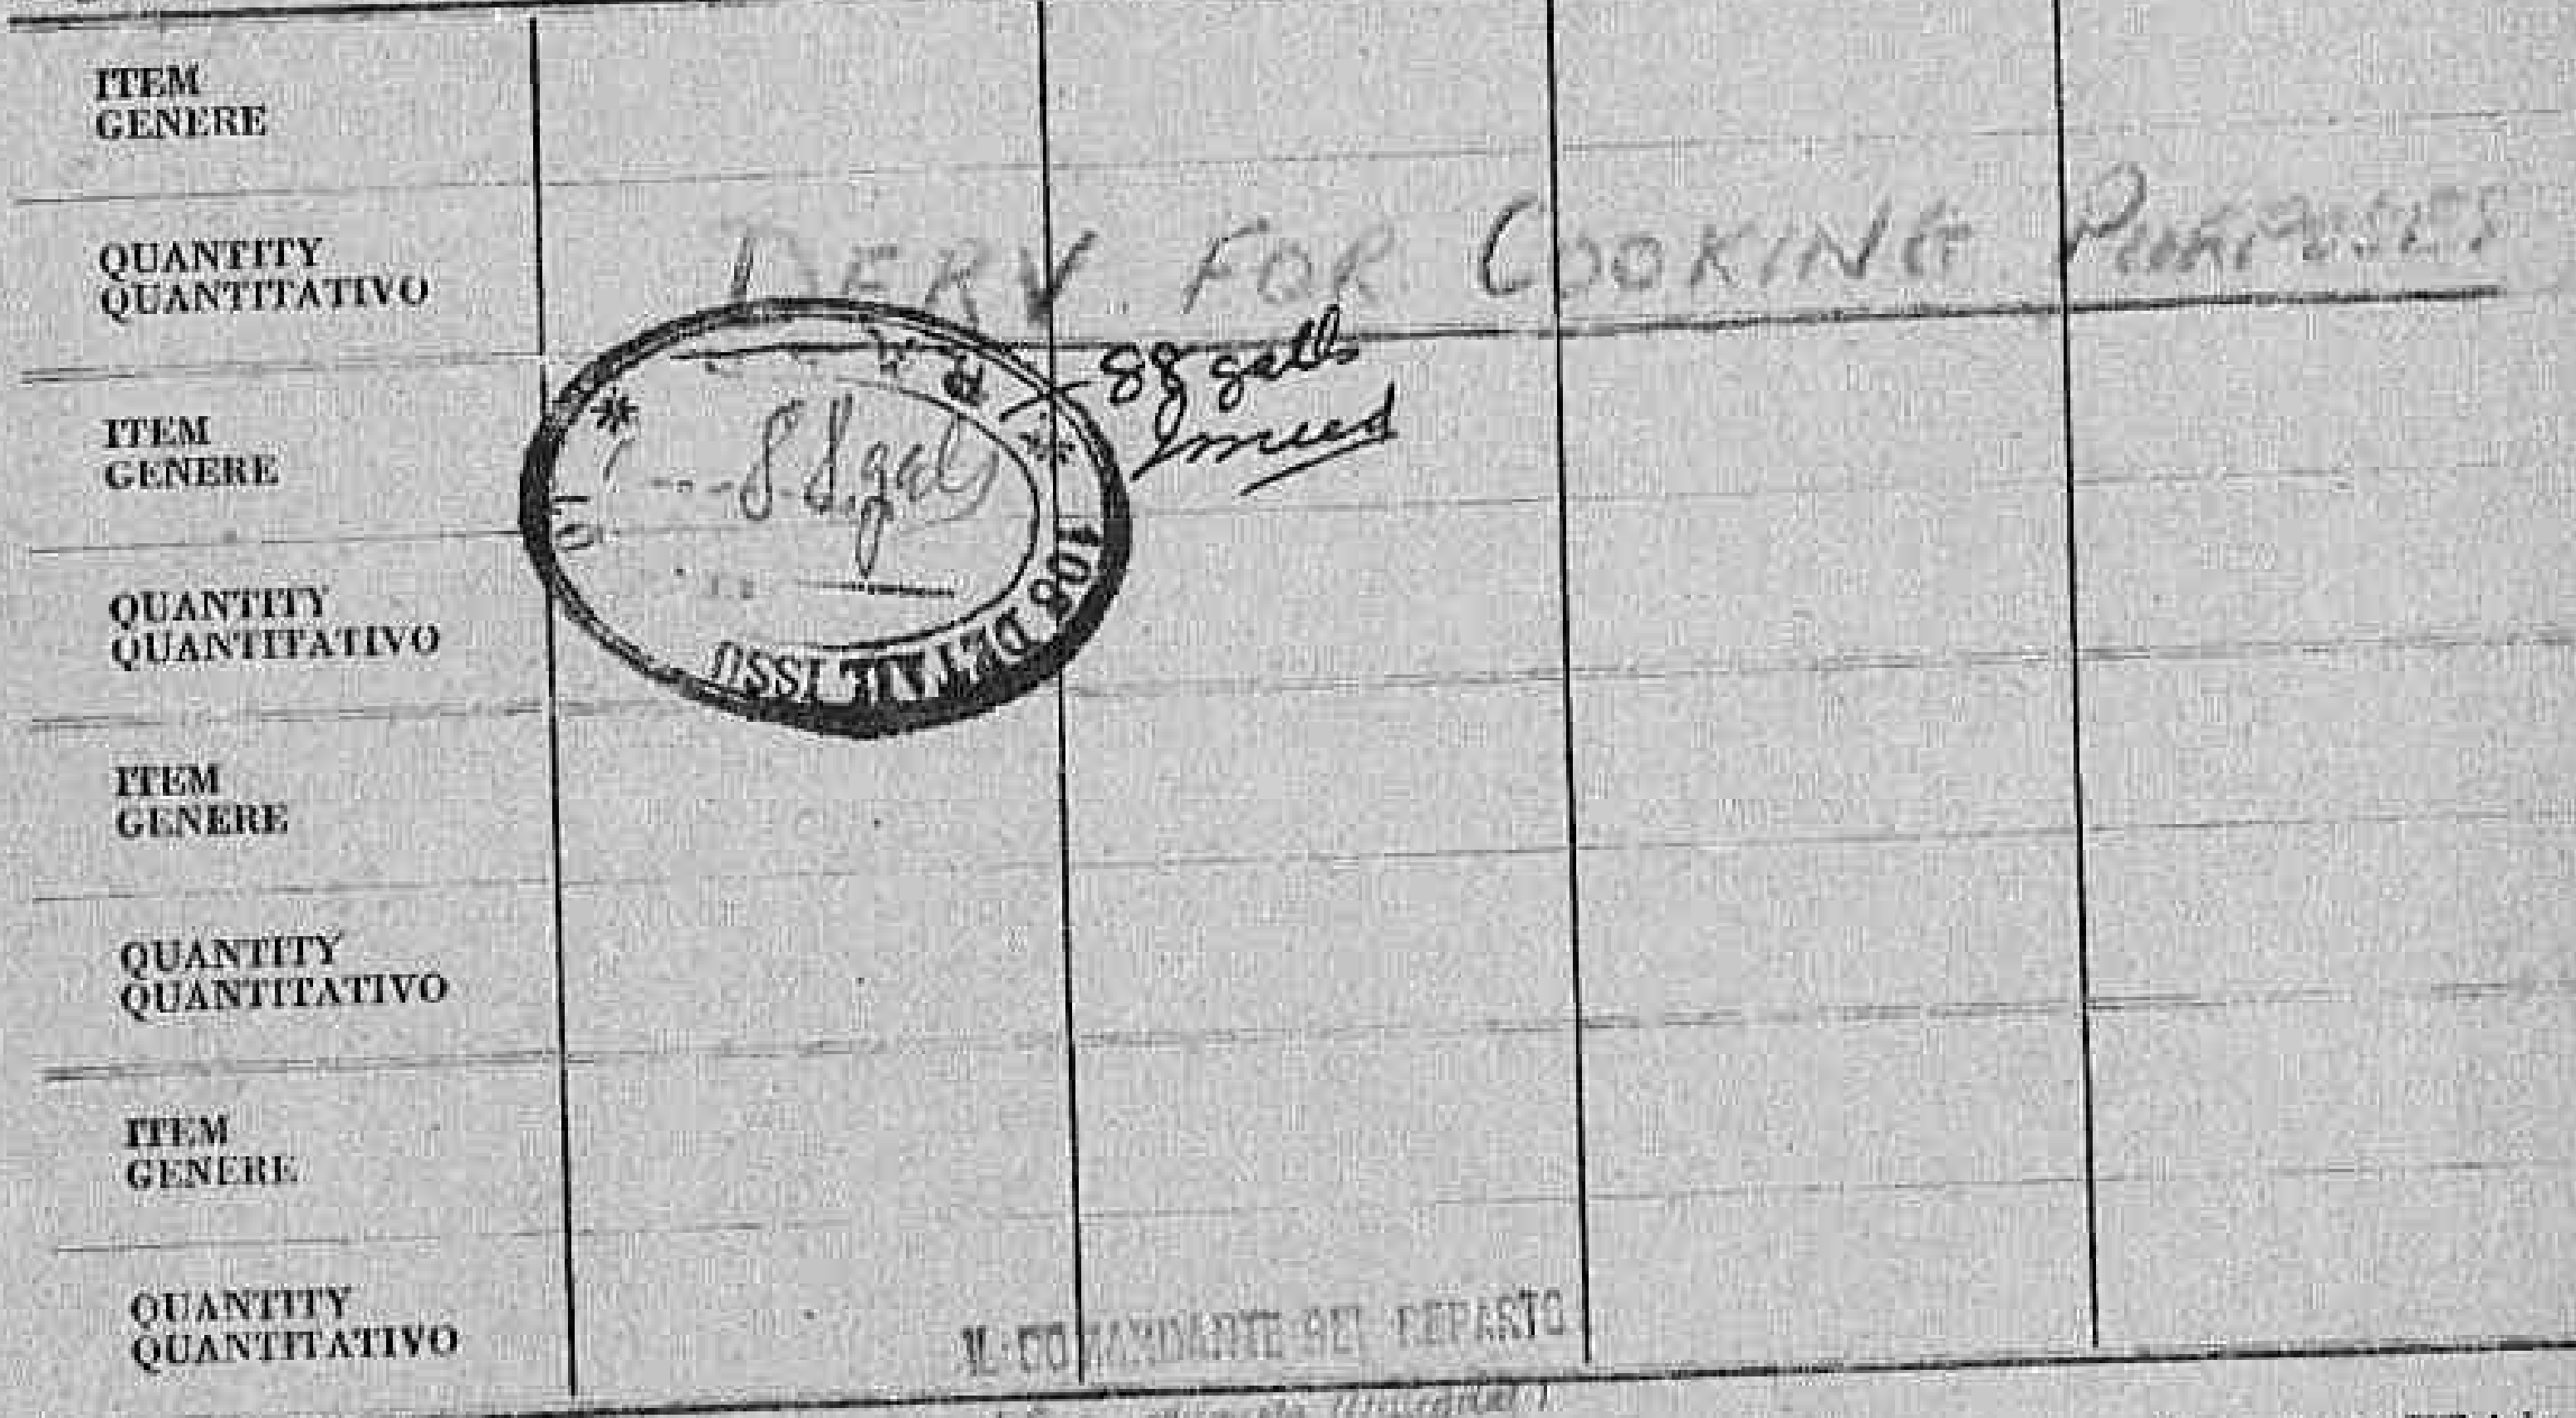 ITEM
GENERE
QUANTITY
QUANTITATIVO
DERV FOR COOKING PURPOSES
ITEM
GENERE
88 gals
88 galls
issued
408 DETAIL ISSU
QUANTITY
QUANTITATIVO
ITEM
GENERE
QUANTITY
QUANTITATIVO
ITEM
GENERE
QUANTITY
QUANTITATIVO
IL COMANDANTE DEL REPARTO